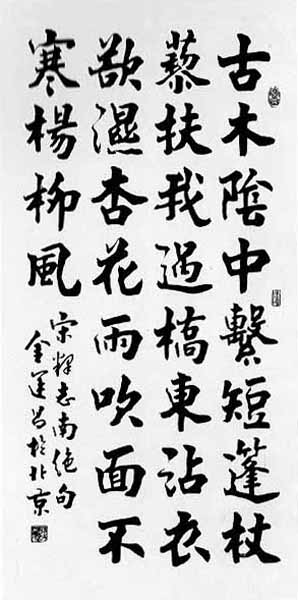 古木陰中繫短篷杖
藜扶我過橋東沾衣
欲濕杏花雨吹面不
寒楊柳風
宋釋志南絕句
金運昌於北京